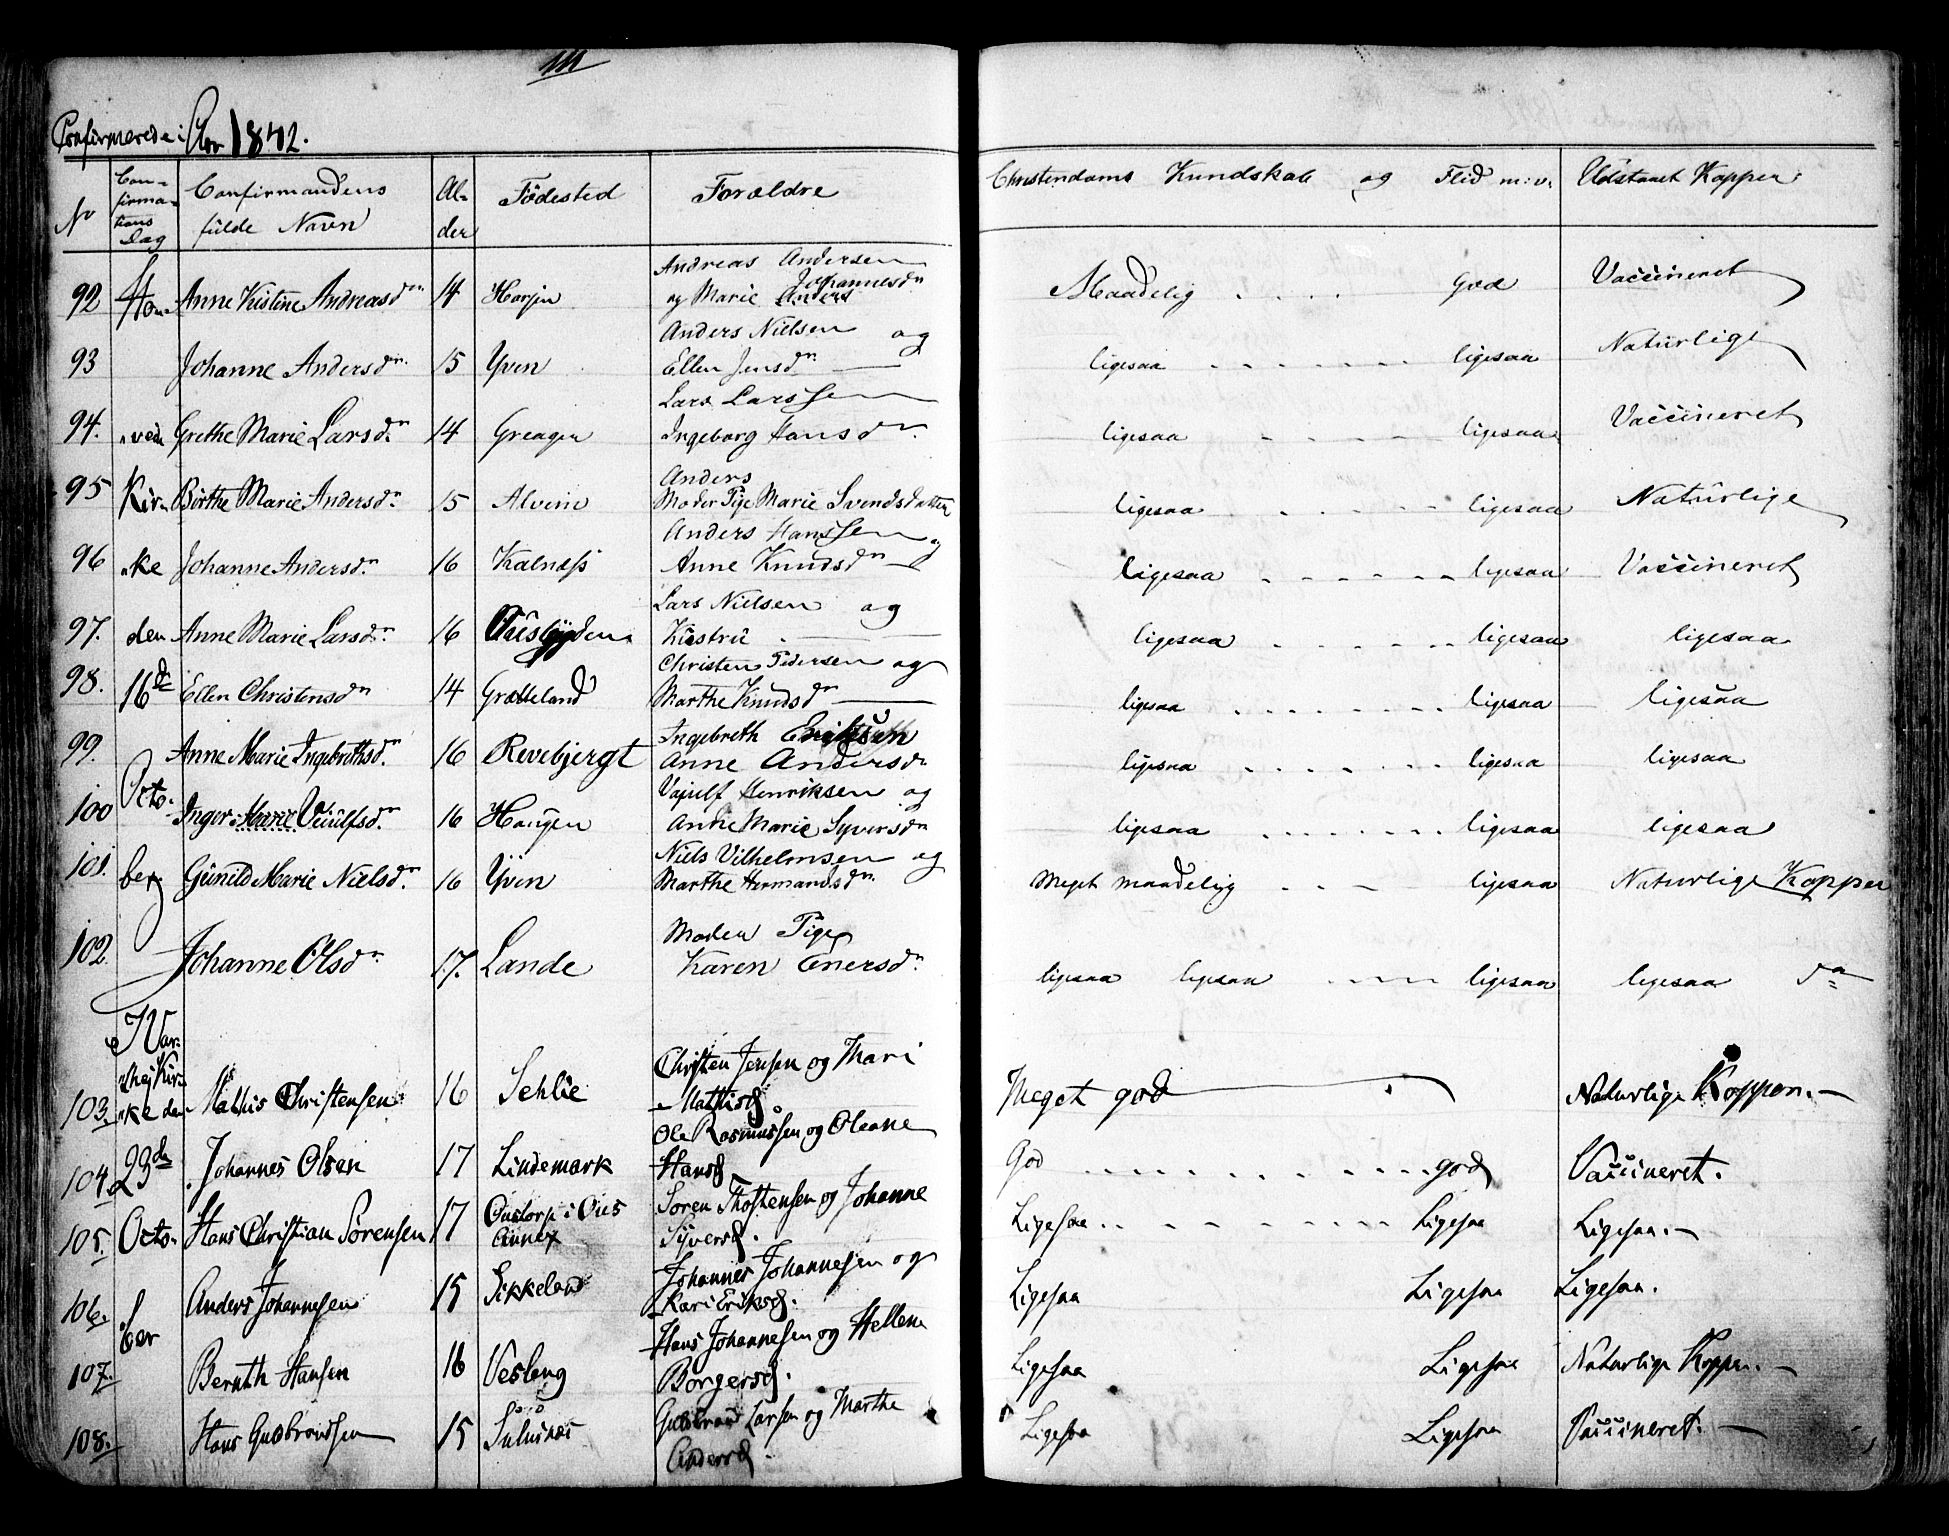 Confirmerede i Aar 1842.
No
Con-
firma-
tions
Dag
Confirmandens
fulde Navn
Al-
der
Födested
Forældre
Christendoms Kundskab og Flid m: v.
Udstaaet Kopper
92 Ho- Anne Kistine Andreasdn 14
Andreas Andersen
og Marie Johannesdn
Maadelig . . . . God Vaccineret
93 Johanne Andersdn. 15 Yven
Anders Nielsen og
Ellen Jensdn.
ligesaa ligesaa Naturlige
94. -vede Grethe Marie Larsdn 14
Lars Larssen
Ingeborg Hansdn.
ligesaa ligesaa Vaccineret
95 Kir- Birthe Marie Andersdn. 15 Alveim
Anders
Moder Pige Marie Svendsdatter
ligesaa ligesaa Naturlige
96 -ke Johanne Andersdn. 16 Kalnæss
Anders Hanssen og
Anne Knudsdn
ligesaa ligesaa Vaccineret
97. den Anne Marie Larsdn. 16
Lars Nielsen og
ligesaa ligesaa ligesaa
98. 16de Ellen Christensdn 14 Grætteland
Christen Pedersen og
Marthe Knudsdn
ligesaa ligesaa ligesaa
99. Anne Marie Ingebrethsdn. 16 Revebjergt
Ingebreth Eriksen
Anne Andersdn
ligesaa ligesaa ligesaa
100 Octo- Inger Marie Veiulfsdn. 16 Haugen
Vejulf Henriksen og
Anne Marie Syversdn
ligesaa ligesaa ligesaa
101. ber Gunild Marie Nielsdn. 16 Yven
Niels Vilhelmsen og
Marthe Hermandsdn.
Meget maadelig ligesaa Naturlige Kopper
102 Johanne Olsdn 17. Lande
Moder Pige
Karen Enersdn.
ligesaa ligesaa ligesaa ligesaa do
I Var-
-thej Kir-
103. -ke den Mathis Christensen 16 Sehlie
Christen Jensen og Mari
Mathisd.
Meget god Naturlige Kopper.
104. 23de Johannes Olsen 17 Lindemark
Ole Rasmussen og Oleane
Hansd
God god Vaccineret.
105. Octo- Hans Christian Sörensen 17
Annex
Sören Thostensen og Johanne
Syversd.
Ligesaa Ligesaa Ligesaa.
106. Anders Johannesen 15 Sikkeland
Johannes Johannesen og
Kari Eriksd.
Ligesaa Ligesaa Ligesaa.
ber
107. Bernth Hansen 16 Vesleng
Hans Johannesen og Hellene
Borgersd.
Ligesaa Ligesaa Naturlige Kopper.
108. Hans Gudbrandsen 15
Gudbrand Larsen og Marthe
Andersd.
Ligesaa Ligesaa Vaccineret.